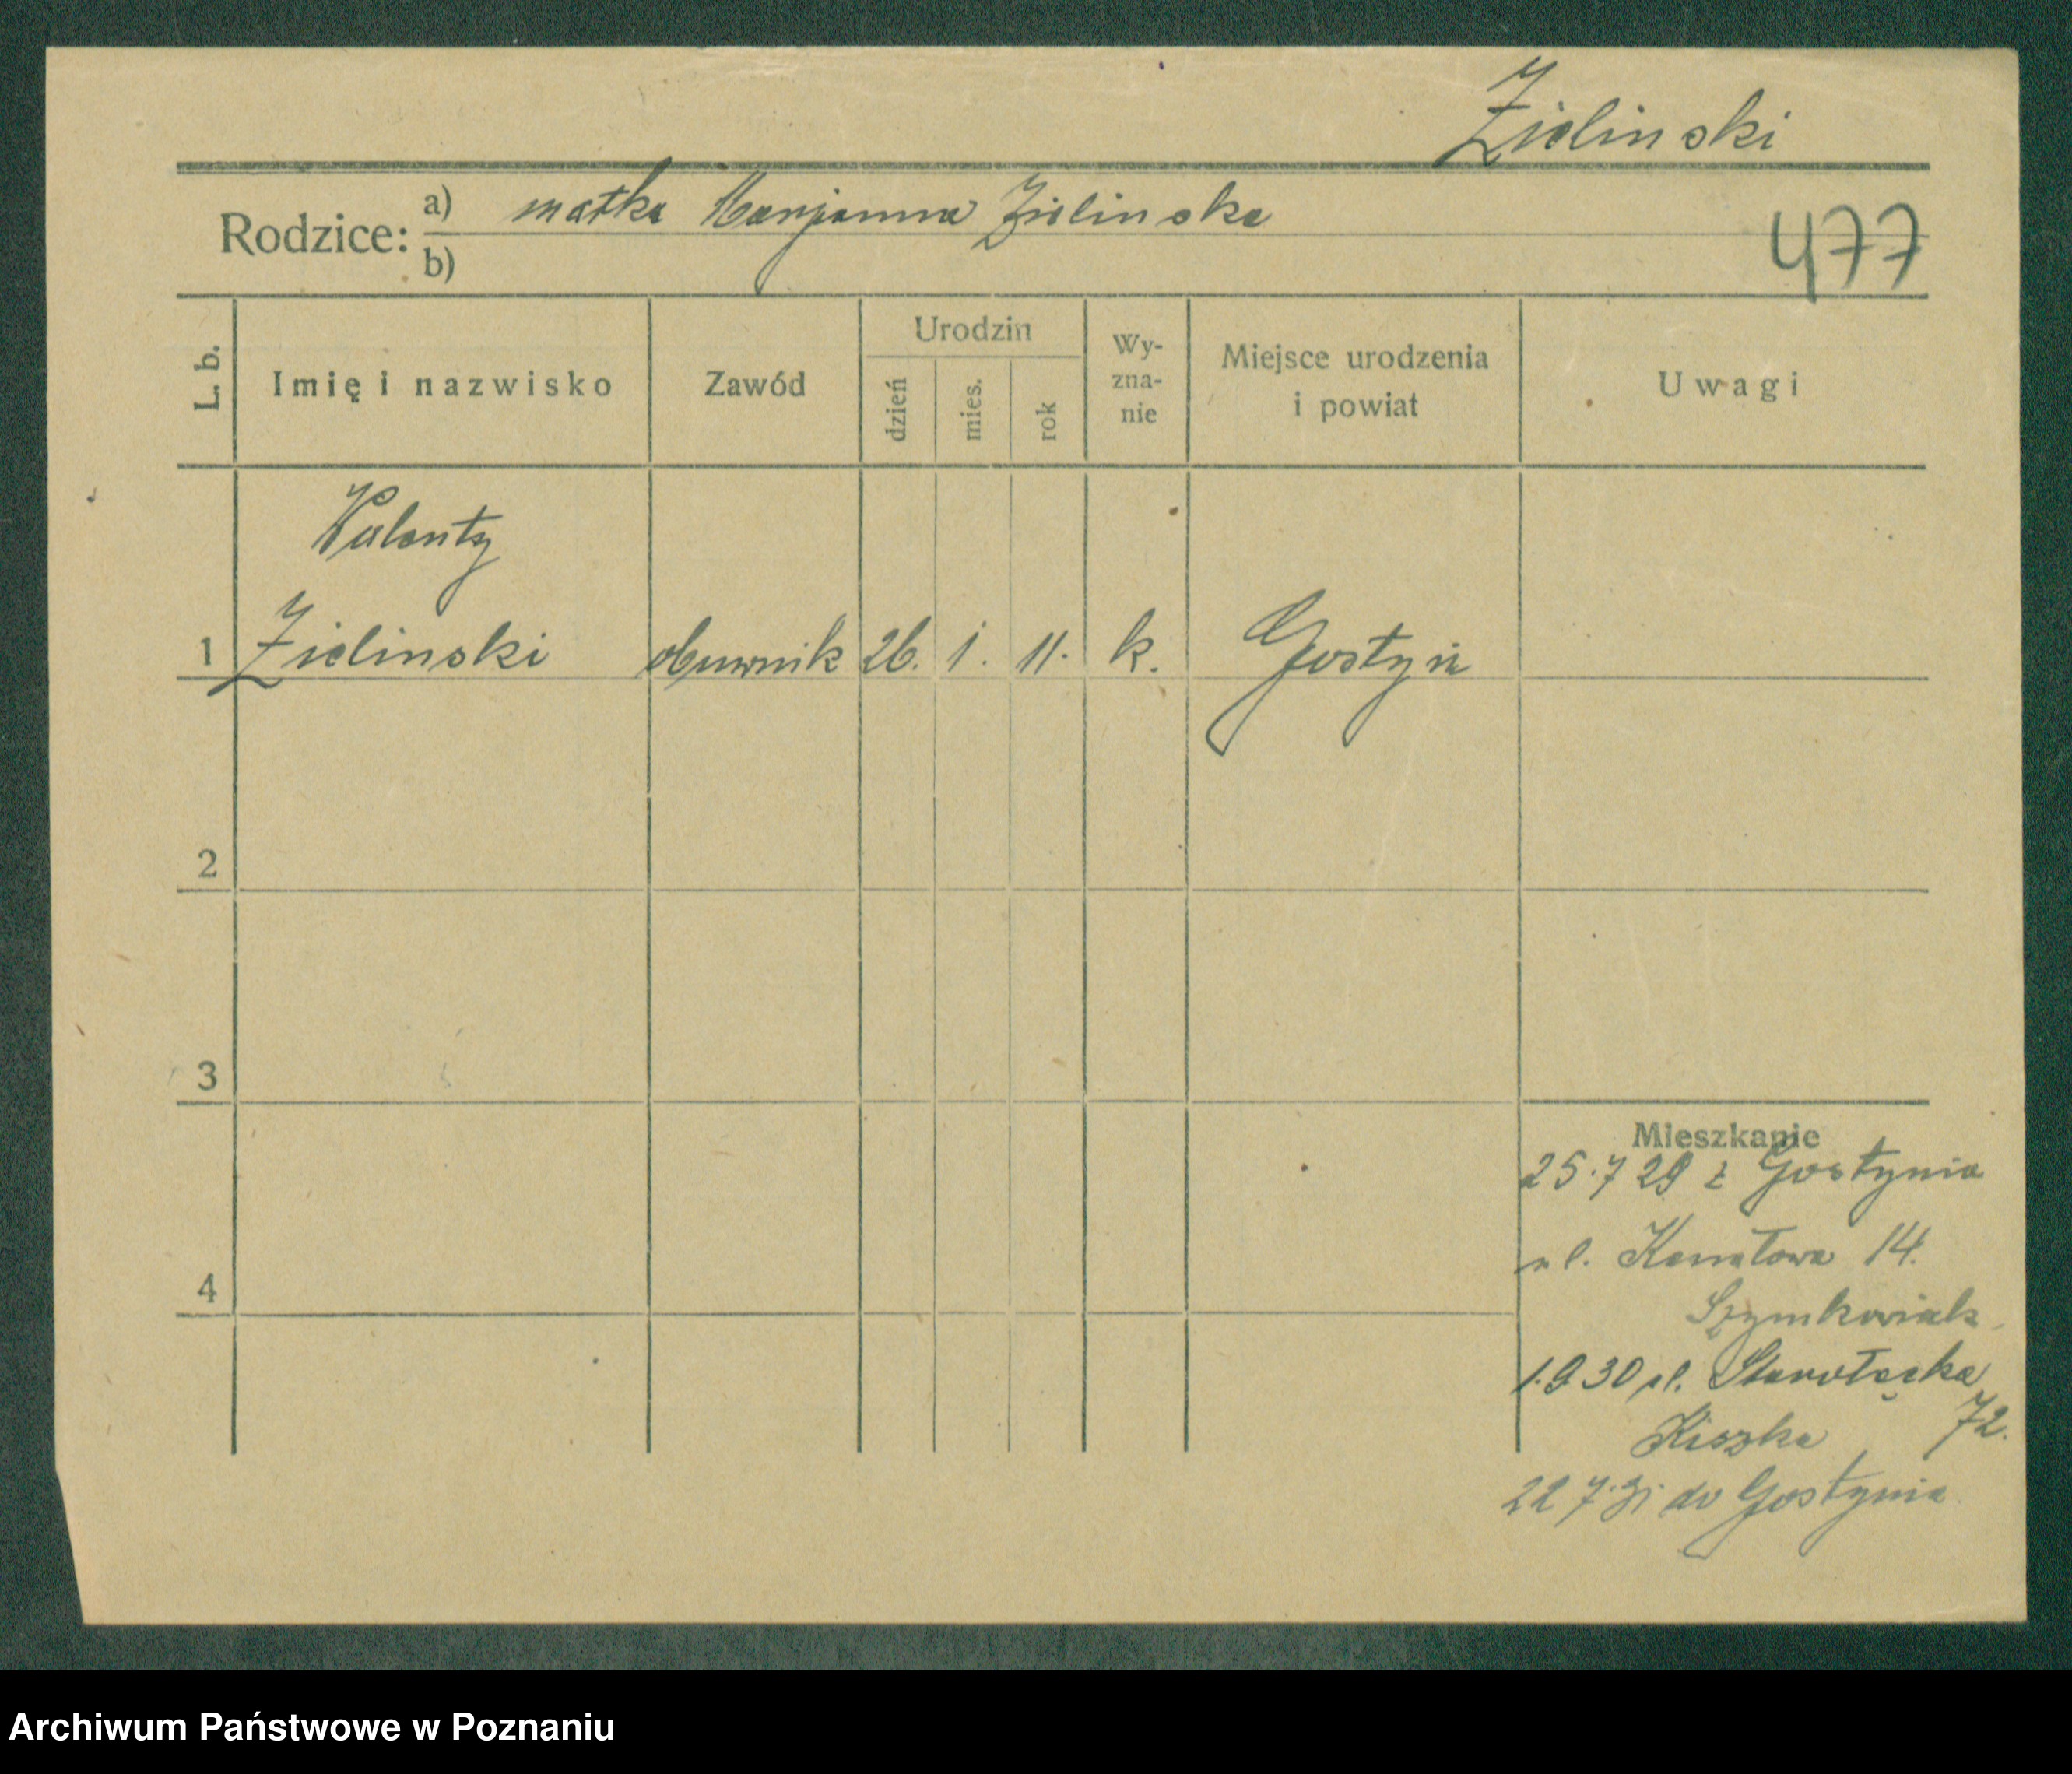 Zielinski
Rodzice: a) matka Marjanna Zielinska
b)
477
L. b. Imię i nazwisko Zawód Urodzin dzień mies. rok Wy-zna-nie Miejsce urodzenia i powiat Uwagi
Walenty
1 Zielinski obuwnik 26. 1. 11. k. Gostyń
2
3
4
Mieszkanie
25.7 29 z Gostynia
ul. Kanałowa 14.
Szymkowiak
1.9 30 ul. Starołęcka
Kiszka 72.
22 7.31 do Gostynia
Archiwum Państwowe w Poznaniu